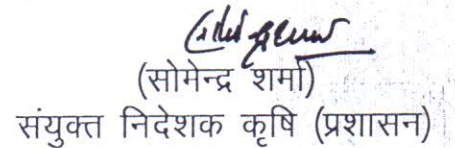 (सोमेन्द्र शर्मा)
संयुक्त निदेशक कृषि (प्रशासन)